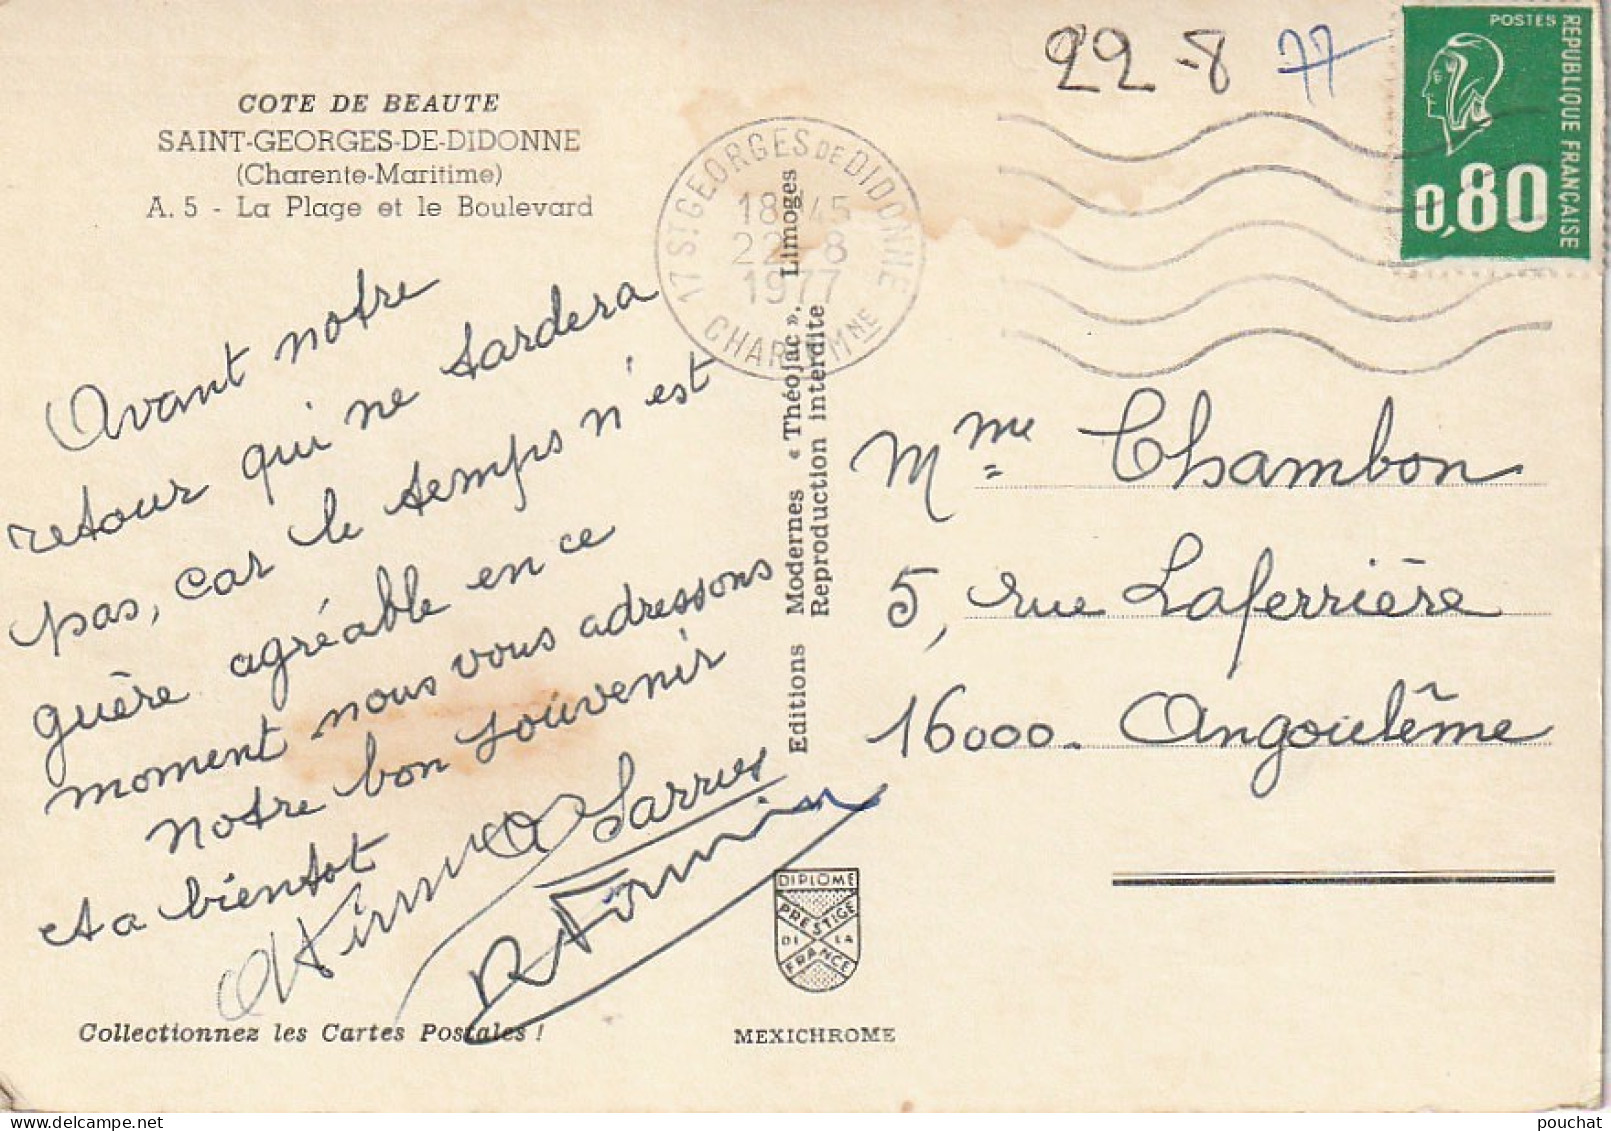 22-8 77
POSTES
REPUBLIQUE FRANÇAISE
0,80
COTE DE BEAUTE
SAINT-GEORGES-DE-DIDONNE
(Charente-Maritime)
A. 5 - La Plage et le Boulevard
17 ST GEORGES DE DIDONNE
18 45
22 8
1977
CHARTE MNE
Avant notre
retour qui ne tardera
pas, car le temps n'est
guère agréable en ce
moment nous vous adressons
notre bon souvenir
et a bientot
Editions Modernes « Théojac », Limoges
Reproduction interdite
Mme Chambon
5, rue Laferrière
16000. Angoulême
DIPLOME
PRESTIGE
DE LA
FRANCE
Collectionnez les Cartes Postales !
MEXICHROME
pouchat